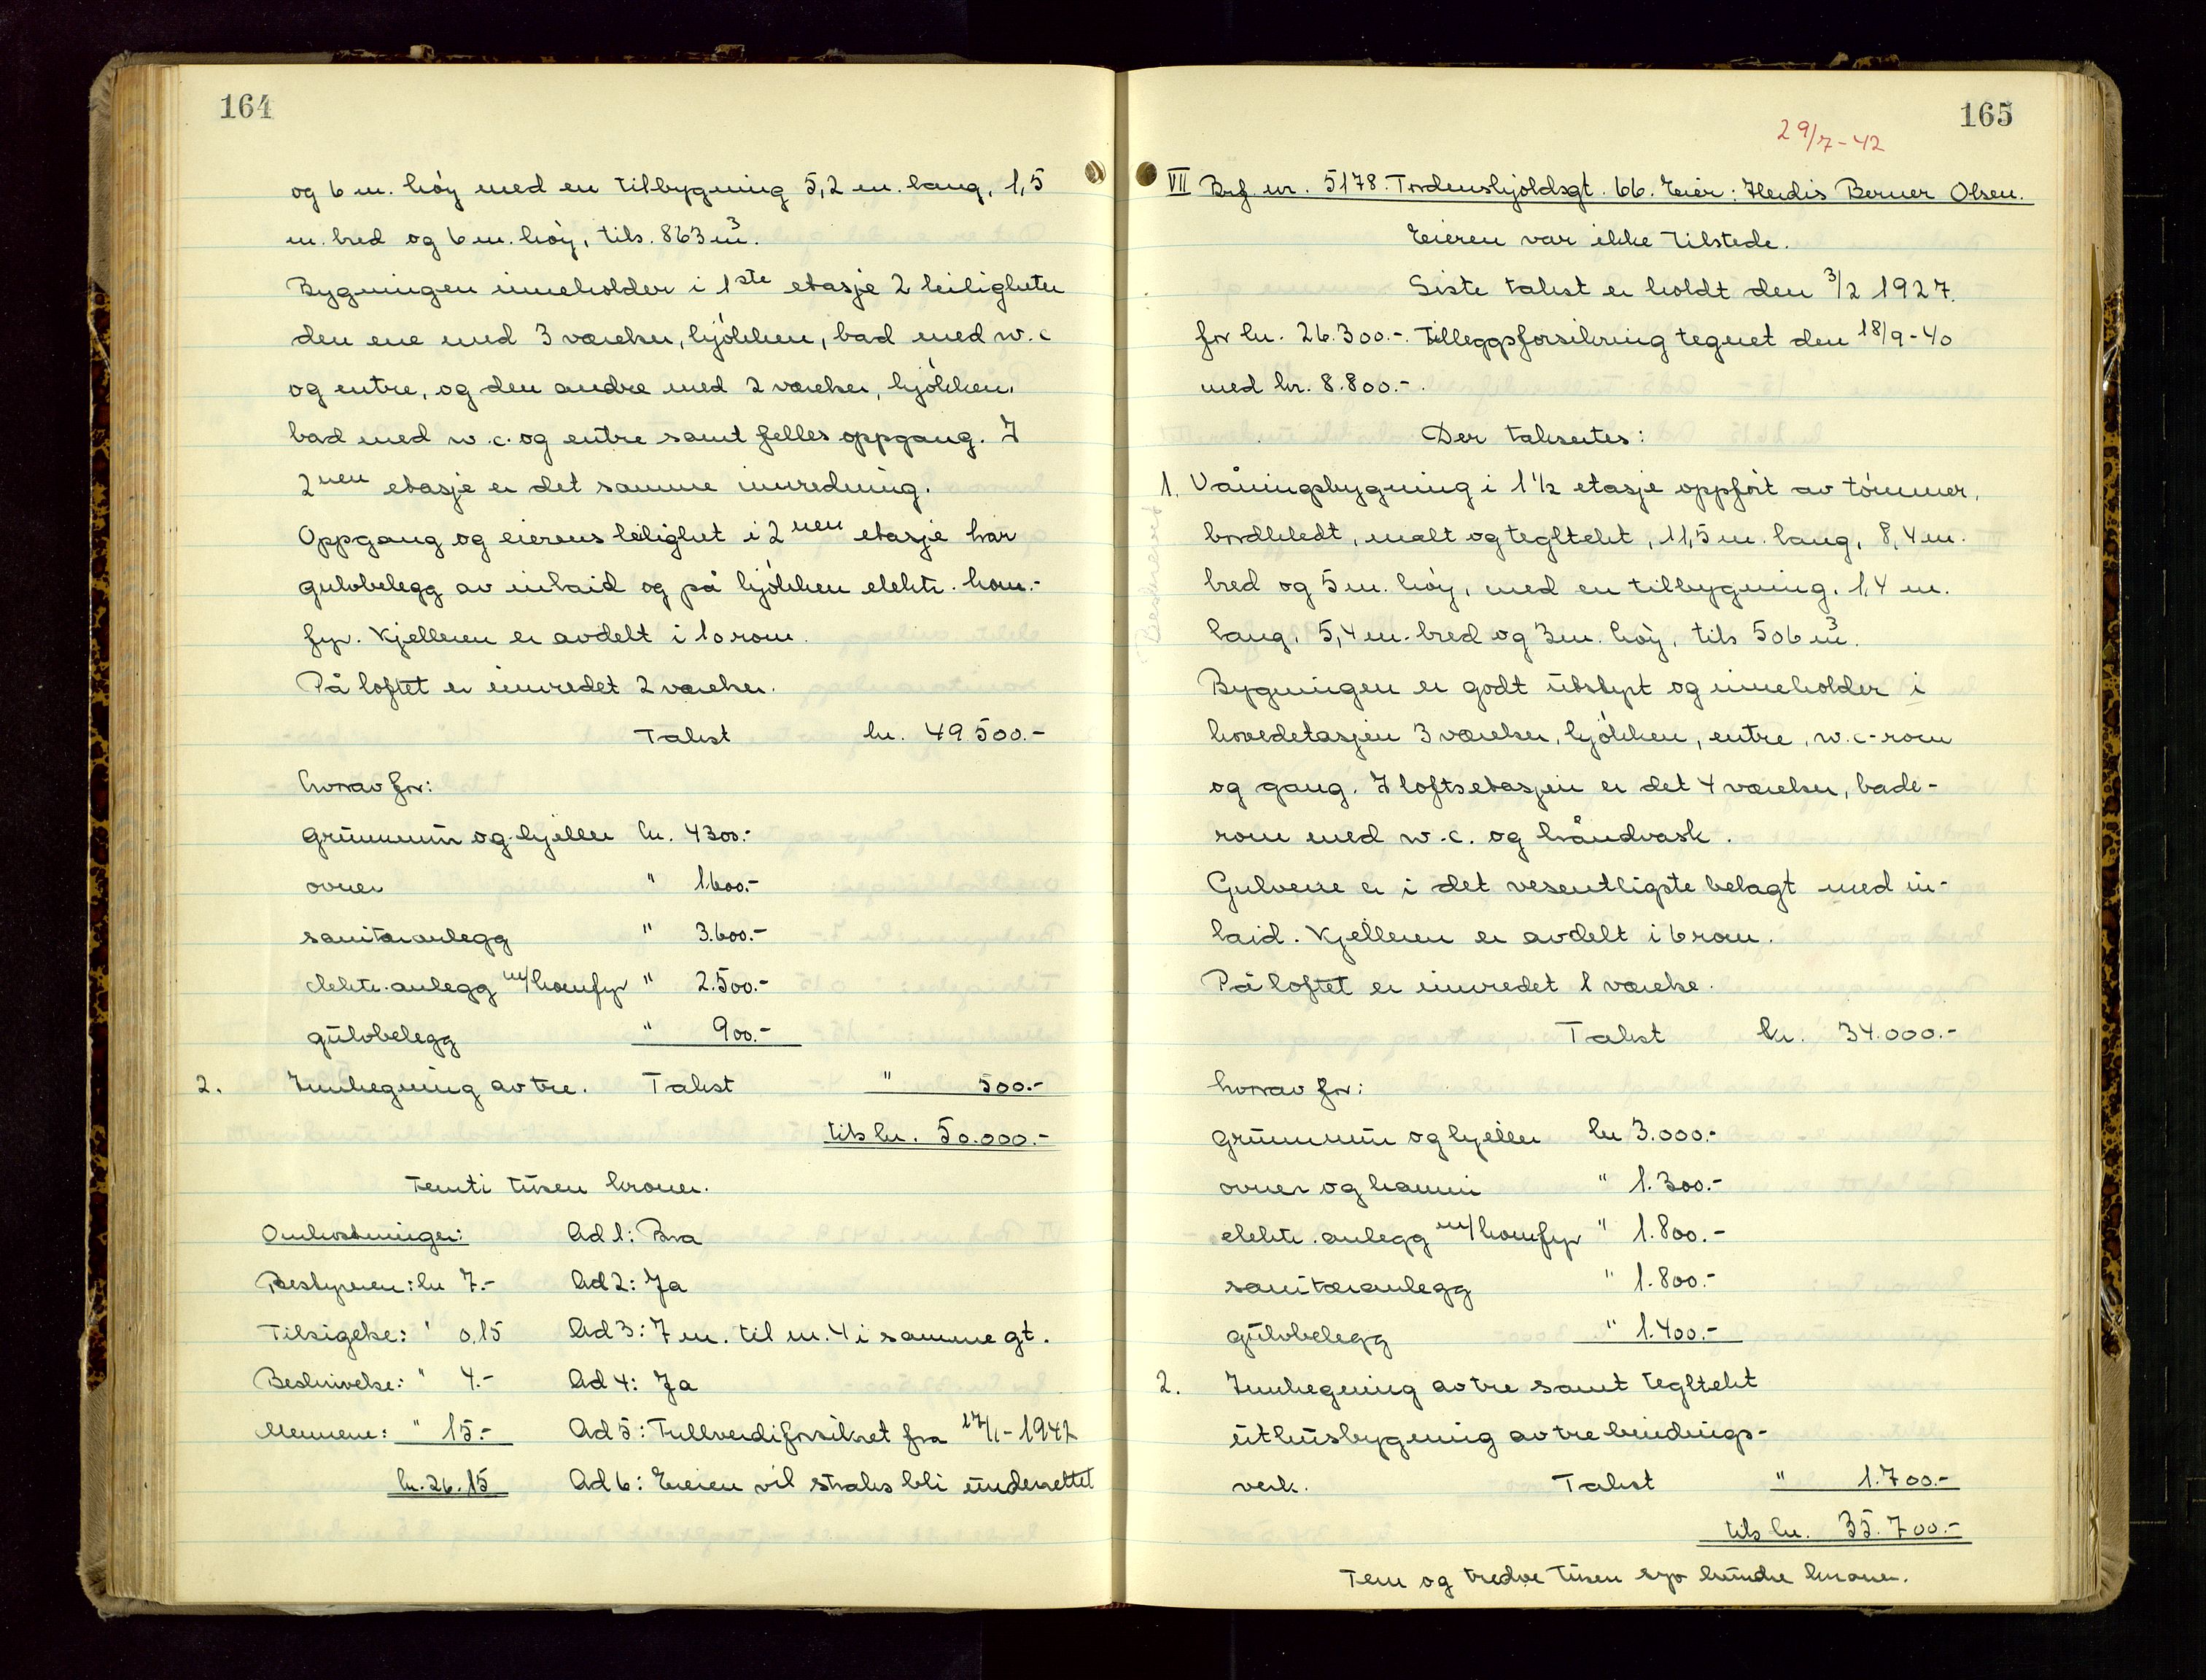 164
og 6 m. høy med en tilbygning 5,2 m. lang, 1,5
m. bred og 6 m. høy, tils. 863 m³.
Bygningen inneholder i 1ste etasje 2 leiligheter
den ene med 3 værelser, kjøkken, bad med w.c
og entre, og den andre med 2 værelser, kjøkken,
bad med w.c. og entre samt felles oppgang. I
2nen etasje er det samme innredning.
Oppgang og eierens leilighet i 2nen etasje har
gulvbelegg av inlaid og på kjøkken elektr. kom.-
fyr. Kjelleren er avdelt i 10 rom.
På loftet er innredet 2 værelser.
Takst kr. 49500.-
hvorav for:
grunnmur og kjeller kr. 4300.-
ovner " 1600.-
sanitæranlegg " 3.600.-
elektr. anlegg m/komfyr " 2.500.-
gulvbelegg " 900.-
2. Innhegning av tre. Takst " 500.-
tils kr. 50.000.-
Femti tusen kroner.
Omkostninger: Ad 1: Bra
Bestyreren: kr 7.- Ad 2: Ja
Tilsigelse: " 0,15 Ad 3: 7 m. til nr. 4 i samme gt.
Beskrivelse: " 4.- Ad 4: Ja
Mennene: " 15.- Ad 5: Fullverdiforsikret fra 27/1-1942
kr. 26.15 Ad 6: Eieren vil straks bli underrettet
165
29/7-42
VII Brf. nr. 5178. Tordenskjoldsgt. 66. Eier: Herdis Berner Olsen.
Eieren var ikke tilstede.
Siste takst er holdt den 3/2 1927.
for kr. 26.300.-. Tilleggsforsikring tegnet den 18/9-40
med kr. 8.800.-.
Der takseres:
1. Våningsbygning i 1 1/2 etasje oppført av tømmer,
bordkledt, malt og tegltekt, 11,5 m. lang, 8,4 m.
bred og 5 m. høy, med en tilbygning, 1,4 m.
lang, 5,4 m. bred og 3 m. høy, tils 506 m³.
Bygningen er godt utstyrt og inneholder i
hovedetasjen 3 værelser, kjøkken, entre, w.c-rom
og gang. I loftsetasjen er det 4 værelser, bade-
rom med w.c. og håndvask.
Gulvene er i det vesentligste belagt med in-
laid. Kjelleren er avdelt i 6 rom.
På loftet er innredet 1 værelse.
Takst kr. 34.000.-
hvorav for:
grunnmur og kjeller kr 3.000.-
ovner og kamin " 1.300.-
elektr. anlegg m/komfyr " 1.800.-
sanitæranlegg " 1.800.-
gulvbelegg " 1.400.-
2. Innhegning av tre samt tegltekt
uthusbygning av tre bindings-
verk. Takst " 1.700.-
tils kr. 35.700.-
Fem og tredve tusen syv hundre kroner.